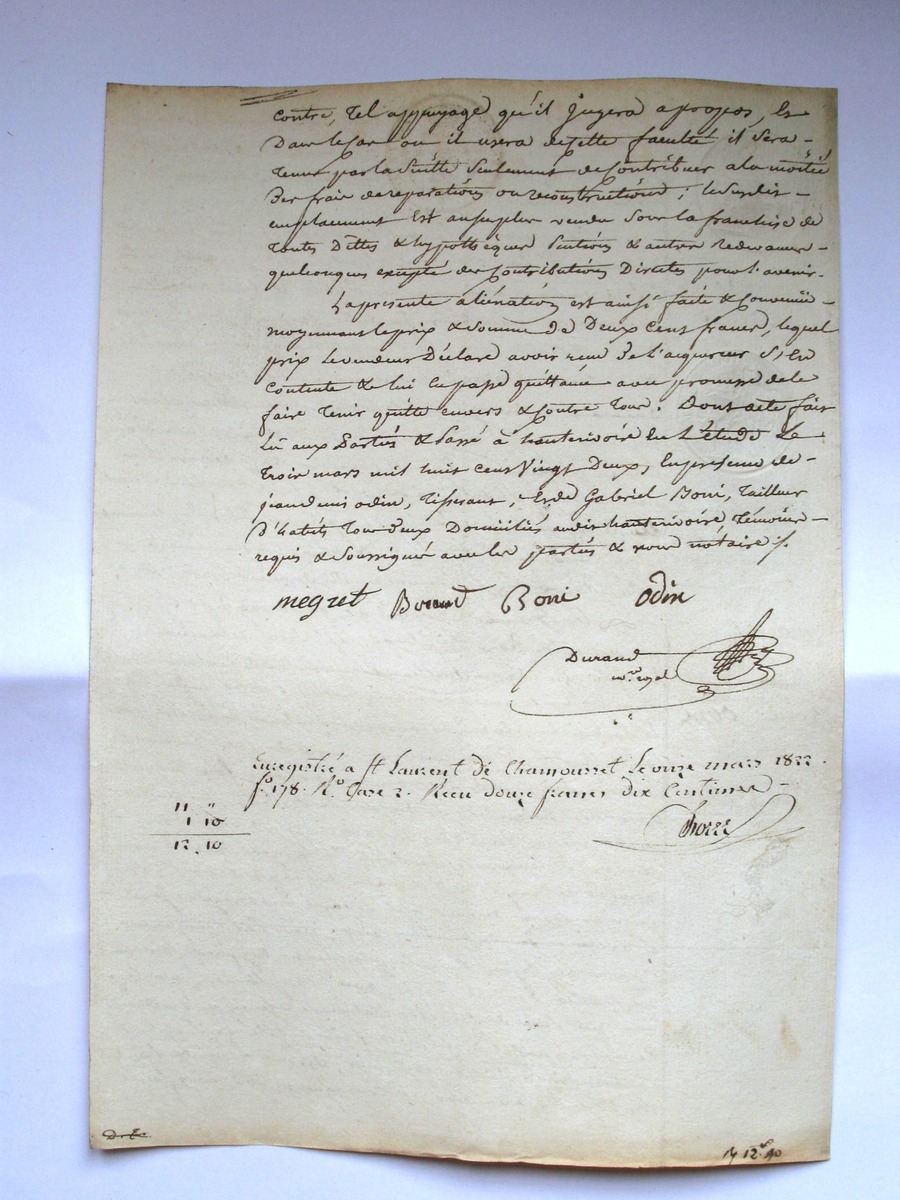 contre, tel appuyage qu'il jugera apropos, et
Dans le cas ou il usera de cette faculté il sera
tenu par la suitte seulement de contribuer a la moitié
Des frais de reparations ou reconstructions ; le susdit
emplacement Est au surplus vendu sous la franchise de
toutes Dettes & hypothèques & autres redevances
quelconques excepté des Contributions Directes pour l'avenir.
La presente aliénation est ainsi faite & Convenüe
moyennant le prix & somme de Deux cent francs, lequel
prix le vendeur Déclare avoir recu de l'acquereur s'en
contente & lui en passe quittance avec promesse de le
faire tenir quitte envers & Contre tous. Dont acte fait
Lû aux Parties & Passé à hauterivoire En L'étude Le
trois mars mil huit cent Vingt Deux, En presence de
jean denis odin, tisserant, et de Gabriel Boni, tailleur
D'habits tous deux Domiciliés audit hauterivoire, témoins
requis & soussignés avec les parties & nous notaire ./.
megret Boni odin
Durand
nre. royal
Enregistré a St Laurent de Chamousset Le onze mars 1822.
fo. 178. Ro. Case 2. Recu douze francs dix Centimes
11 "
1 10
12 . 10
D. E.